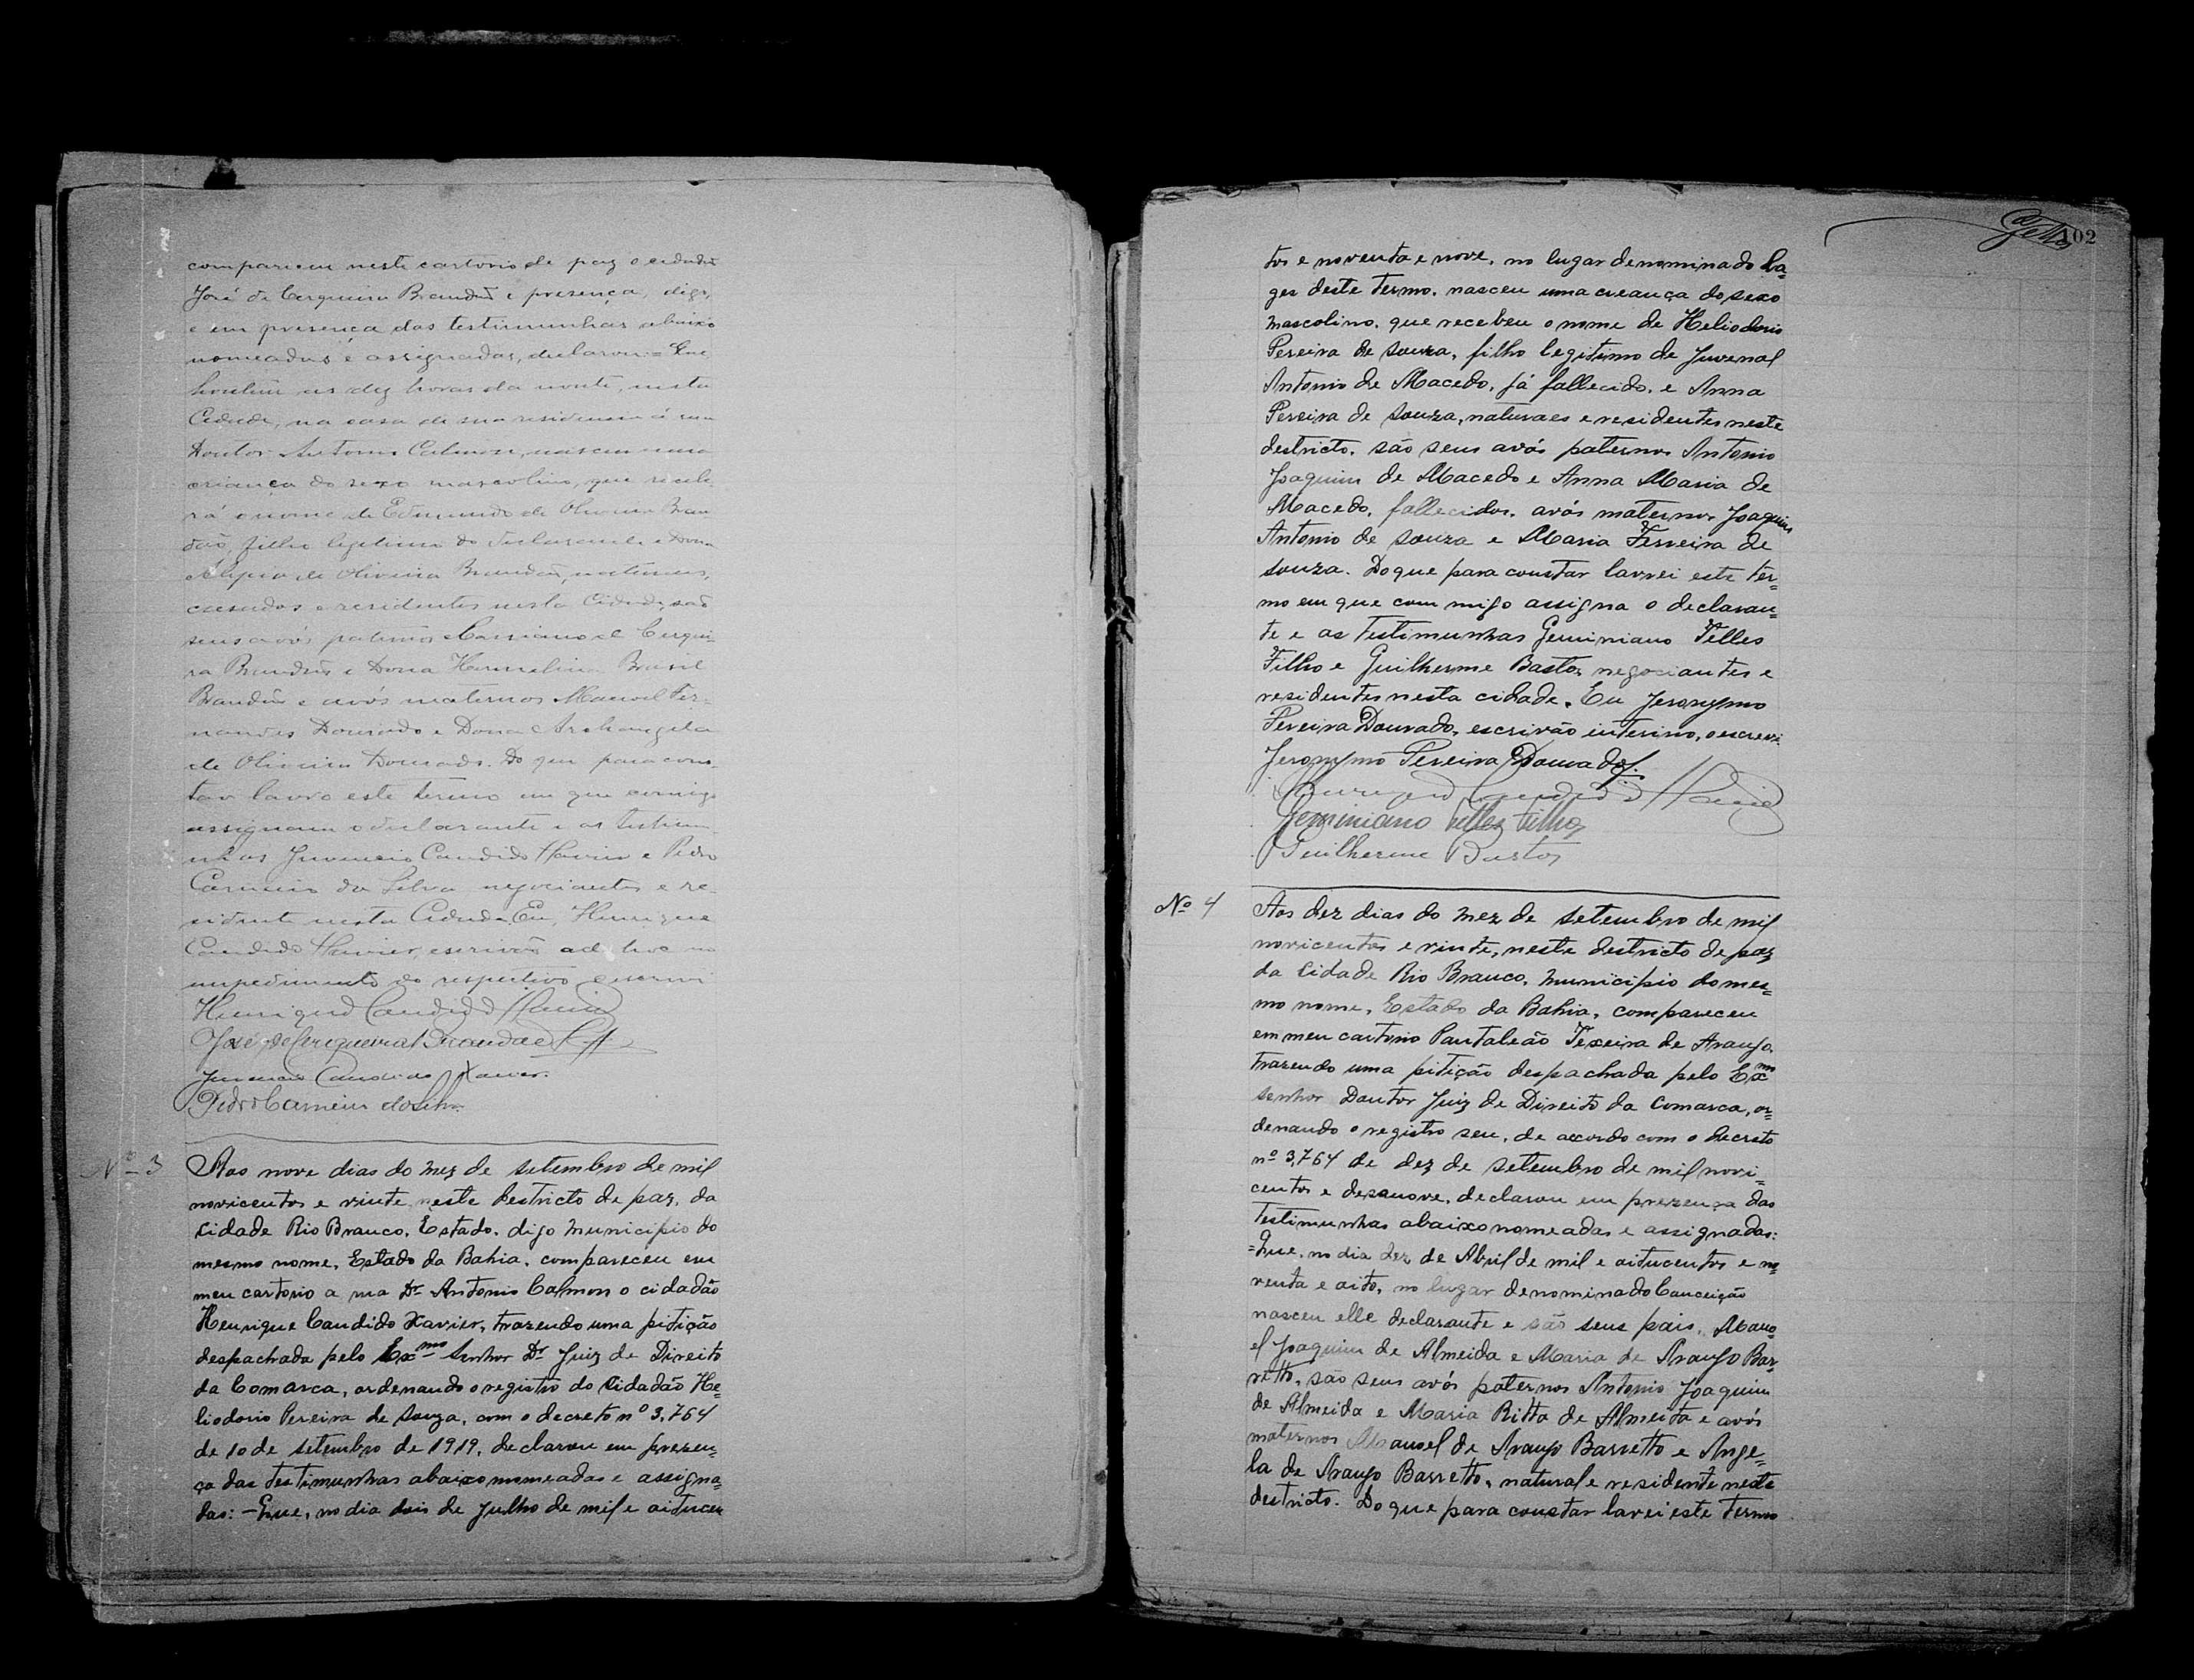 compareceu neste cartorio de paz o cidadão
José de Cerqueira Brandão e presença, digo,
e em presença das testimunhas abaixo
nomeadas e assignadas, declarou:= Que
hontem as dez horas da noute, nesta
Cidade, na casa de sua residencia á rua
Doutor Antonio Calmon, nasceu uma
criança do sexo mascolino, que recebe-
rá o nome de Edmundo de Oliveira Bran
dão, filho legitimo do declarante e Dona
Alipia de Oliveira Brandão, naturaes,
casados e residentes nesta Cidade, são
seus avós paternos Cassiano de Cerquei-
ra Brandão e Dona Hermelina Brasil
Brandão e avós maternos Manoel Fer-
nandes Dourado e Dona Archangela
de Oliveira Dourado. Do que para cons-
tar lavro este termo em que comigo
assignam o declarante e as testimu-
nhas Juvencio Candido Xavier e Pedro
Carneiro da Silva negociantes e re-
sidente nesta Cidade. Eu, Henrique
Candido Xavier, escrivão ad hoc no
impedimento do respectivo escrevi
Henrique Candido Xavier
José de Cerqueira Brandão
Juvencio Candido Xavier.
Pedro Carneiro da Silva
Nº 3 Aos nove dias do mez de setembro de mil
novicentos e vinte, neste destricto de paz, da
Cidade Rio Branco, Estado, digo Municipio do
mesmo nome, Estado da Bahia, compareceu em
meu cartorio a rua Dr Antonio Calmon o cidadão
Henrique Candido Xavier, trazendo uma pitição
despachada pelo Exmo Senhor Dr Juiz de Direito
da Comarca, ordenando o registro do Cidadão He=
liodorio Pereira de Souza, com o decreto nº 3,764
de 10 de setembro de 1919, declarou em prezen=
ça das testimunhas abaixo nomeadas e assigna=
das: - Que, no dia dois de Julho de mil e aitucen
102
tos e noventa e nove, no lugar denominado La=
ges deste termo, nasceu uma creança do sexo
mascolino, que recebeu o nome de Heliodorio
Pereira de Souza, filho legitimo de Juvenal
Antonio de Macedo, já fallecido, e Anna
Pereira de Souza, naturaes e residentes neste
destricto, são seus avós paternos Antonio
Joaquim de Macedo e Anna Maria de
Macedo, fallecidos, avós maternos Joaquim
Antonio de Souza e Maria Ferreira de
Souza. Do que para constar lavrei este ter=
mo em que com migo assigna o declaran=
te e as testimunhas Geminiano Telles
Filho e Guilherme Bastos, negociantes e
residentes nesta cidade. Eu Jeronymo
Pereira Dourado, escrivão interino, o escrevi
Jeronymo Pereira Dourado.
Henrique Candido Xavier
Geminiano Telles Filho
Guilherme Bastos
Nº 4 Aos dez dias do mez de setembro de mil
novicentos e vinte, neste destricto de paz
da Cidade Rio Branco, Municipio do mes=
mo nome, Estado da Bahia, compareceu
em meu cartorio Pantaleão Texeira de Araujo,
trazendo uma pitição despachada pelo Exmo
Senhor Doutor Juiz de Direito da Comarca, or=
denando o registro seu, de accordo com o decreto
nº 3,764 de dez de setembro de mil novi-
centos e desanove, declarou em prezença das
testimunhas abaixo nomeadas e assignadas:
=Que, no dia dez de Abril de mil e aitucentos e no=
venta e aito, no lugar denominado Conceição
nasceu elle declarante e são seus pais, Mano=
el Joaquim de Almeida e Maria de Araujo Bar=
retto, são seus avós paternos Antonio Joaquim
de Almeida e Maria Ritta de Almeida e avós
maternos Manoel de Araujo Barretto e Ange=
la de Araujo Barretto, natural e residente neste
destricto. Do que para constar lavrei este termo